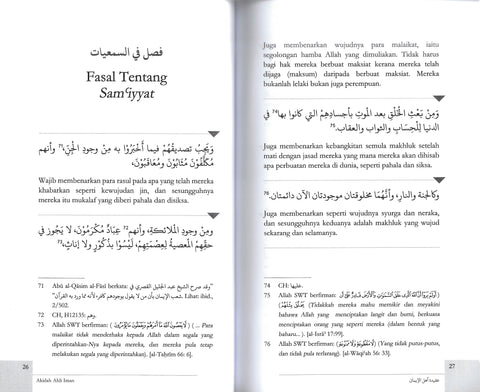 فصل في السمعيات
Fasal Tentang
Sam‘iyyat
وَيَجِبُ تصديقُهُمْ فيما أَخْبَرُوْا به مِنْ وجودِ الجِنِّ،⁷¹ وأنهم
مكلَّفُوْنَ مُثَابُوْنَ ومُعَاقَبُوْنَ،
Wajib membenarkan para rasul pada apa yang telah mereka
khabarkan seperti kewujudan jin, dan sesungguhnya
mereka itu mukalaf yang diberi pahala dan disiksa.
ومِنْ وجودِ الملائكةِ، وأنهم⁷² عِبَادٌ مُكْرَمُوْنَ، لا يجوز في
حقِّهِمُ المعصيةُ لِعِصْمَتِهِمْ، لَيْسُوْا بذُكُوْرٍ ولا إناثٍ.⁷³
71 Abū al-Qāsim al-Fāsī berkata: "وقد صرح الشيخ عبد الجليل القصري في
شعب الإيمان بأن من لا يقول بوجودهم كافر، لأنه مما ورد به القرآن" Lihat: ibid.,
2/502.
72 CH, H12135: وهم.
73 Allah SWT berfirman: (لَا يَعْصُوْنَ اللهَ مَا أَمَرَهُمْ وَيَفْعَلُوْنَ مَا يُؤْمَرُوْنَ) (... Para
malaikat tidak menderhaka kepada Allah dalam segala yang
diperintahkan-Nya kepada mereka, dan mereka pula tetap
melakukan segala yang diperintahkan). [al-Taḥrīm 66: 6].
26
Akidah Ahli Iman
Juga membenarkan wujudnya para malaikat, iaitu
segolongan hamba Allah yang dimuliakan. Tidak harus
bagi hak mereka berbuat maksiat kerana mereka telah
dijaga (maksum) daripada berbuat maksiat. Mereka
bukanlah lelaki bukan juga perempuan.
وَمِنْ بَعْثِ الخَلْقِ بعد الموتِ بأجسادِهِمُ التي كانوا بها⁷⁴ في
الدنيا لِلْحِسَابِ والثوابِ والعقابِ.
Juga membenarkan kebangkitan semula makhluk setelah
mati dengan jasad mereka yang mana mereka akan dihisab
apa perbuatan mereka di dunia, seperti pahala dan siksa.
وكالجنةِ والنارِ،⁷⁵ وأنَّهُمَا مخلوقتان موجودتان الآن دائمتان.⁷⁶
Juga membenarkan seperti wujudnya syurga dan neraka,
dan sesungguhnya keduanya adalah makhluk yang wujud
sekarang dan selamanya.
74 CH: عليها.
75 Allah SWT berfirman: (أَوَلَيْسَ الَّذِيْ خَلَقَ السَّمٰوٰتِ وَالْأَرْضَ بِقٰدِرٍ عَلٰى أَنْ
يَخْلُقَ مِثْلَهُمْ) (Tidakkah mereka mahu memikir dan meyakini
bahawa Tuhan yang menciptakan langit dan bumi, berkuasa
menciptakan orang yang seperti mereka (dalam bentuk yang
baharu... ). [al-Isrā’ 17: 99].
76 Allah SWT berfirman: (لَا مَقْطُوْعَةٍ وَلَا مَمْنُوْعَةٍ) (Yang tidak putus dan
tidak pula terlarang). [al-Wāqi‘ah 56: 33].
27
عقيدة أهل الإيمان